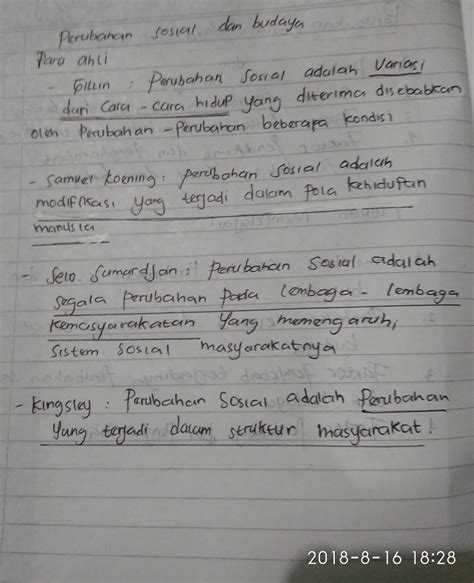 Perubahan sosial dan budaya
Para ahli
- Gillin : Perubahan Sosial adalah Variasi
dari Cara - Cara hidup yang diterima disebabkan
oleh Perubahan - Perubahan beberapa kondisi
- Samuel Koening : perubahan sosial adalah
modifikasi yang terjadi dalam pola kehidupan
manusia
- Selo Sumardjan : perubahan Sosial adalah
segala perubahan pada lembaga - lembaga
kemasyarakatan yang memengaruhi
sistem sosial masyarakatnya
- Kingsley : Perubahan Sosial adalah Perubahan
yang terjadi dalam struktur masyarakat.
2018-8-16 18:28